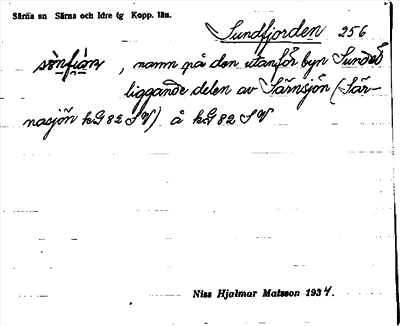 Särna sn Särna och Idre tg Kopp. län.
Sundfjorden 256
, namn på den utanför byn Sundet
liggande delen av Särnsjön (Sär-
nasjön kG 82 SV) å kG 82 SV
Niss Hjalmar Matsson 1934.